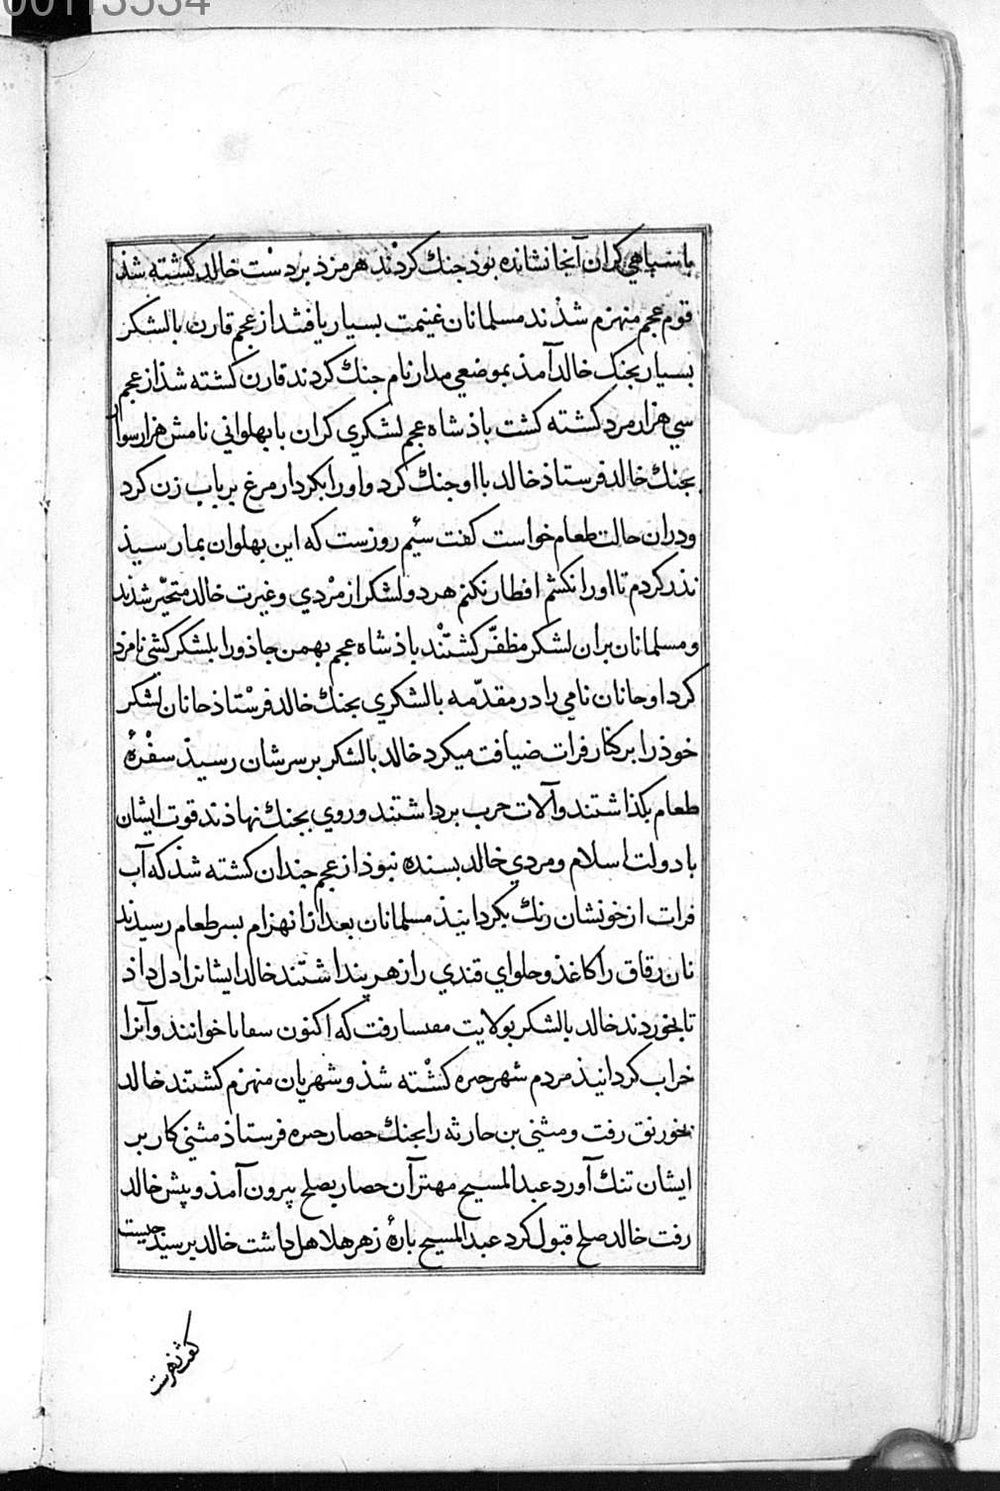 00113534
با سپاهي كران آنجا نشانده بوذ جنك كردند هرمزد بر دست خالد كشته شذ
قوم عجم منهزم شذند مسلمانان غنيمت بسيار يافتند از عجم قارن با لشكر
بسيار بجنك خالد آمذ بموضعي مدار نام جنك كردند قارن كشته شذ از عجم
سي هزار مرد كشته كشت باذشاه عجم لشكري كران با بهلواني نامش هزار سوار
بجنك خالد فرستاذ خالد با او جنك كرد و او را بكردار مرغ بر باب زن كرد
و دران حالت طعام خواست كفت سيم روزست كه اين بهلوان بما رسيذ
نذر كردم تا او را نكشم افطار نكنم هر دو لشكر از مردي و غيرت خالد متحيّر شذند
و مسلمانان بران لشكر مظفّر كشتند باذشاه عجم بهمن جاذو را بلشكر كشي نامزد
كرد او جانان نامي را در مقدّمه با لشكري بجنك خالد فرستاذ جانان لشكر
خوذ را بر كنار فرات ضيافت ميكرد خالد با لشكر بر سرشان رسيذ سفرهٔ
طعام بكذاشتند و آلات حرب برداشتند و روي بجنك نهاذند قوت ايشان
با دولت اسلام و مردي خالد بسنده نبوذ از عجم جندان كشته شذ كه آب
فرات از خونشان رنك بكردانيذ مسلمانان بعد از انهزام بسر طعام رسيدند
نان رقاق را كاغذ و حلواي قندي را زهر پنداشتند خالد ايشانرا دل داذ
تا بخوردند خالد با لشكر بولايت رفت كه اكنون خوانند و آنرا
خراب كردانيذ مردم شهر حيره كشته شذ و شهريان منهزم كشتند خالد
بخورنق رفت و مثني بن حارثه را بجنك حصار حيره فرستاذ مثني كار بر
ايشان تنك آورد عبد المسيح مهتر آن حصار بصلح بيرون آمذ و پيش خالد
رفت خالد صلح قبول كرد عبد المسيح بارهٔ زهر هلاهل داشت خالد پرسيد چيست
كفت زهرست